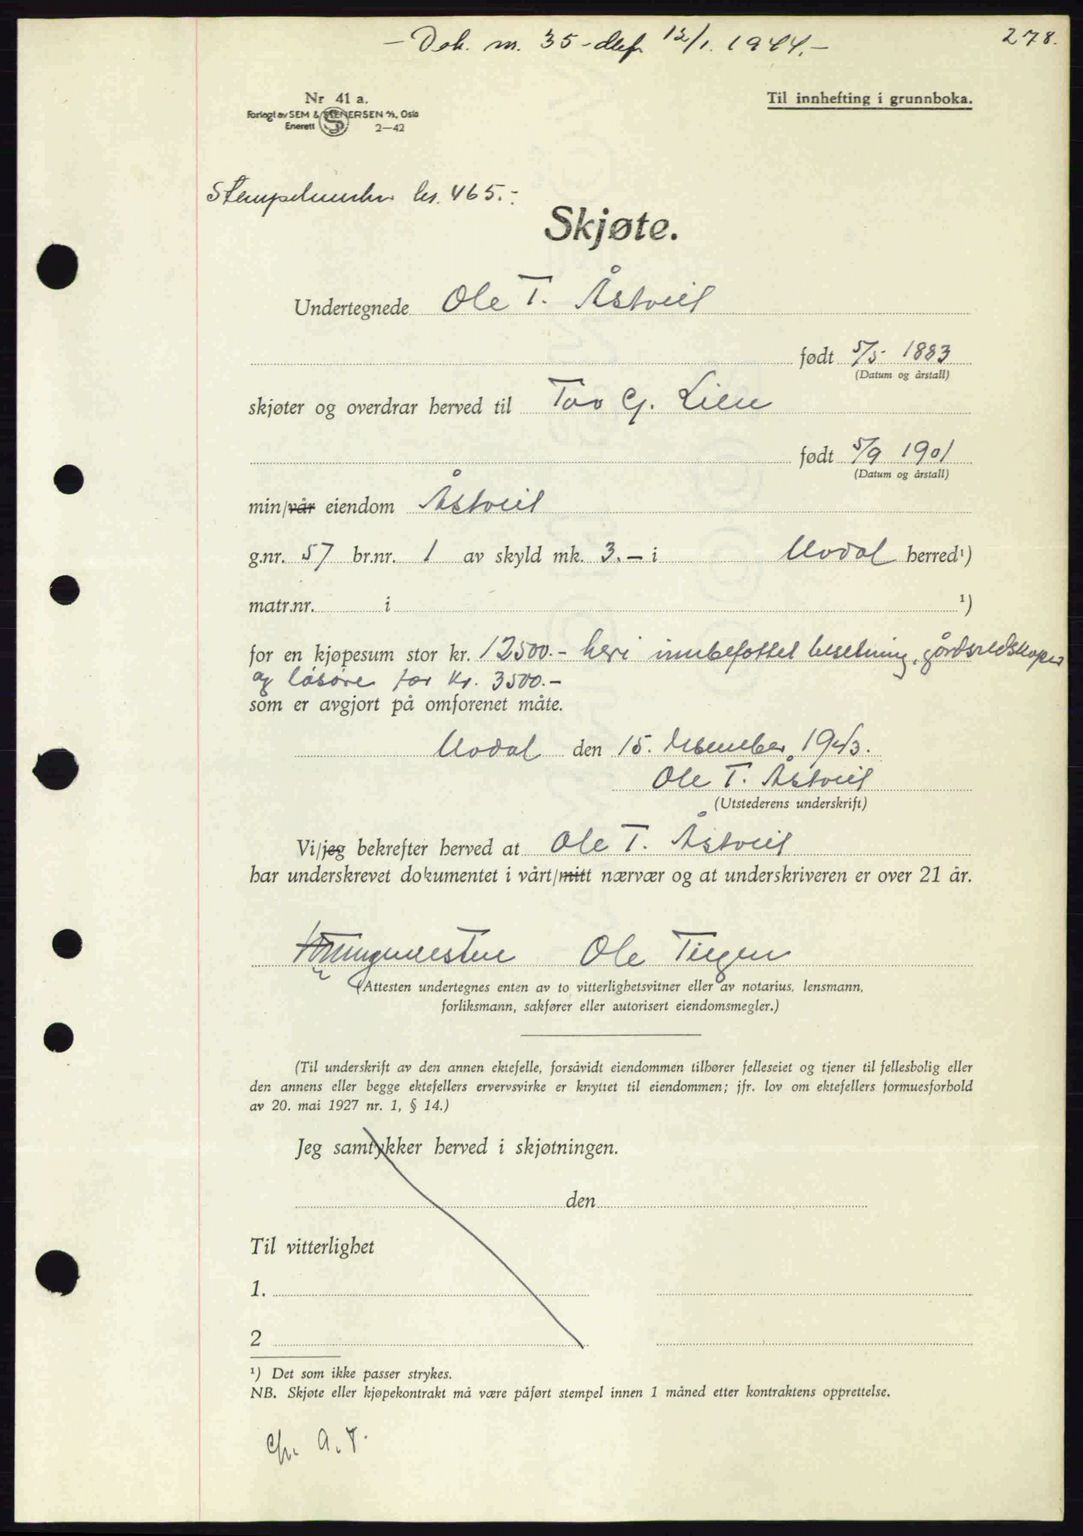 - Dok. nr. 35 - dbf. 12/1. 1944.-
278.
Nr 41 a.
Til innhefting i grunnboka.
Forlagt av SEM & STENERSEN A/S, Oslo
Enerett 2-42
kr. 465.-
Skjøte.
Undertegnede Ole T. Åstveit
født 5/5 1883
(Datum og årstall)
skjøter og overdrar herved til Tov G. Lien
født 5/9 1901
(Datum og årstall)
min/vår eiendom Åstveit
g.nr. 57 br.nr. 1 av skyld mk. 3.- i Uvdal herred¹)
matr.nr. i ¹)
for en kjøpesum stor kr. 12500.- heri innbefattet besetning, gårdsredskaper
og løsøre for kr. 3500.-
som er avgjort på omforenet måte.
Uvdal den 15. desember 1943.
Ole T. Åstveit
(Utstederens underskrift)
Vi/jeg bekrefter herved at Ole T. Åstveit
har underskrevet dokumentet i vårt/mitt nærvær og at underskriveren er over 21 år.
Ole Teigen
(Attesten undertegnes enten av to vitterlighetsvitner eller av notarius, lensmann,
forliksmann, sakfører eller autorisert eiendomsmegler.)
(Til underskrift av den annen ektefelle, forsåvidt eiendommen tilhører felleseiet og tjener til fellesbolig eller
den annens eller begge ektefellers ervervsvirke er knyttet til eiendommen; jfr. lov om ektefellers formuesforhold
av 20. mai 1927 nr. 1, § 14.)
Jeg samtykker herved i skjøtningen.
den
Til vitterlighet
1.
2
¹) Det som ikke passer strykes.
NB. Skjøte eller kjøpekontrakt må være påført stempel innen 1 måned etter kontraktens opprettelse.